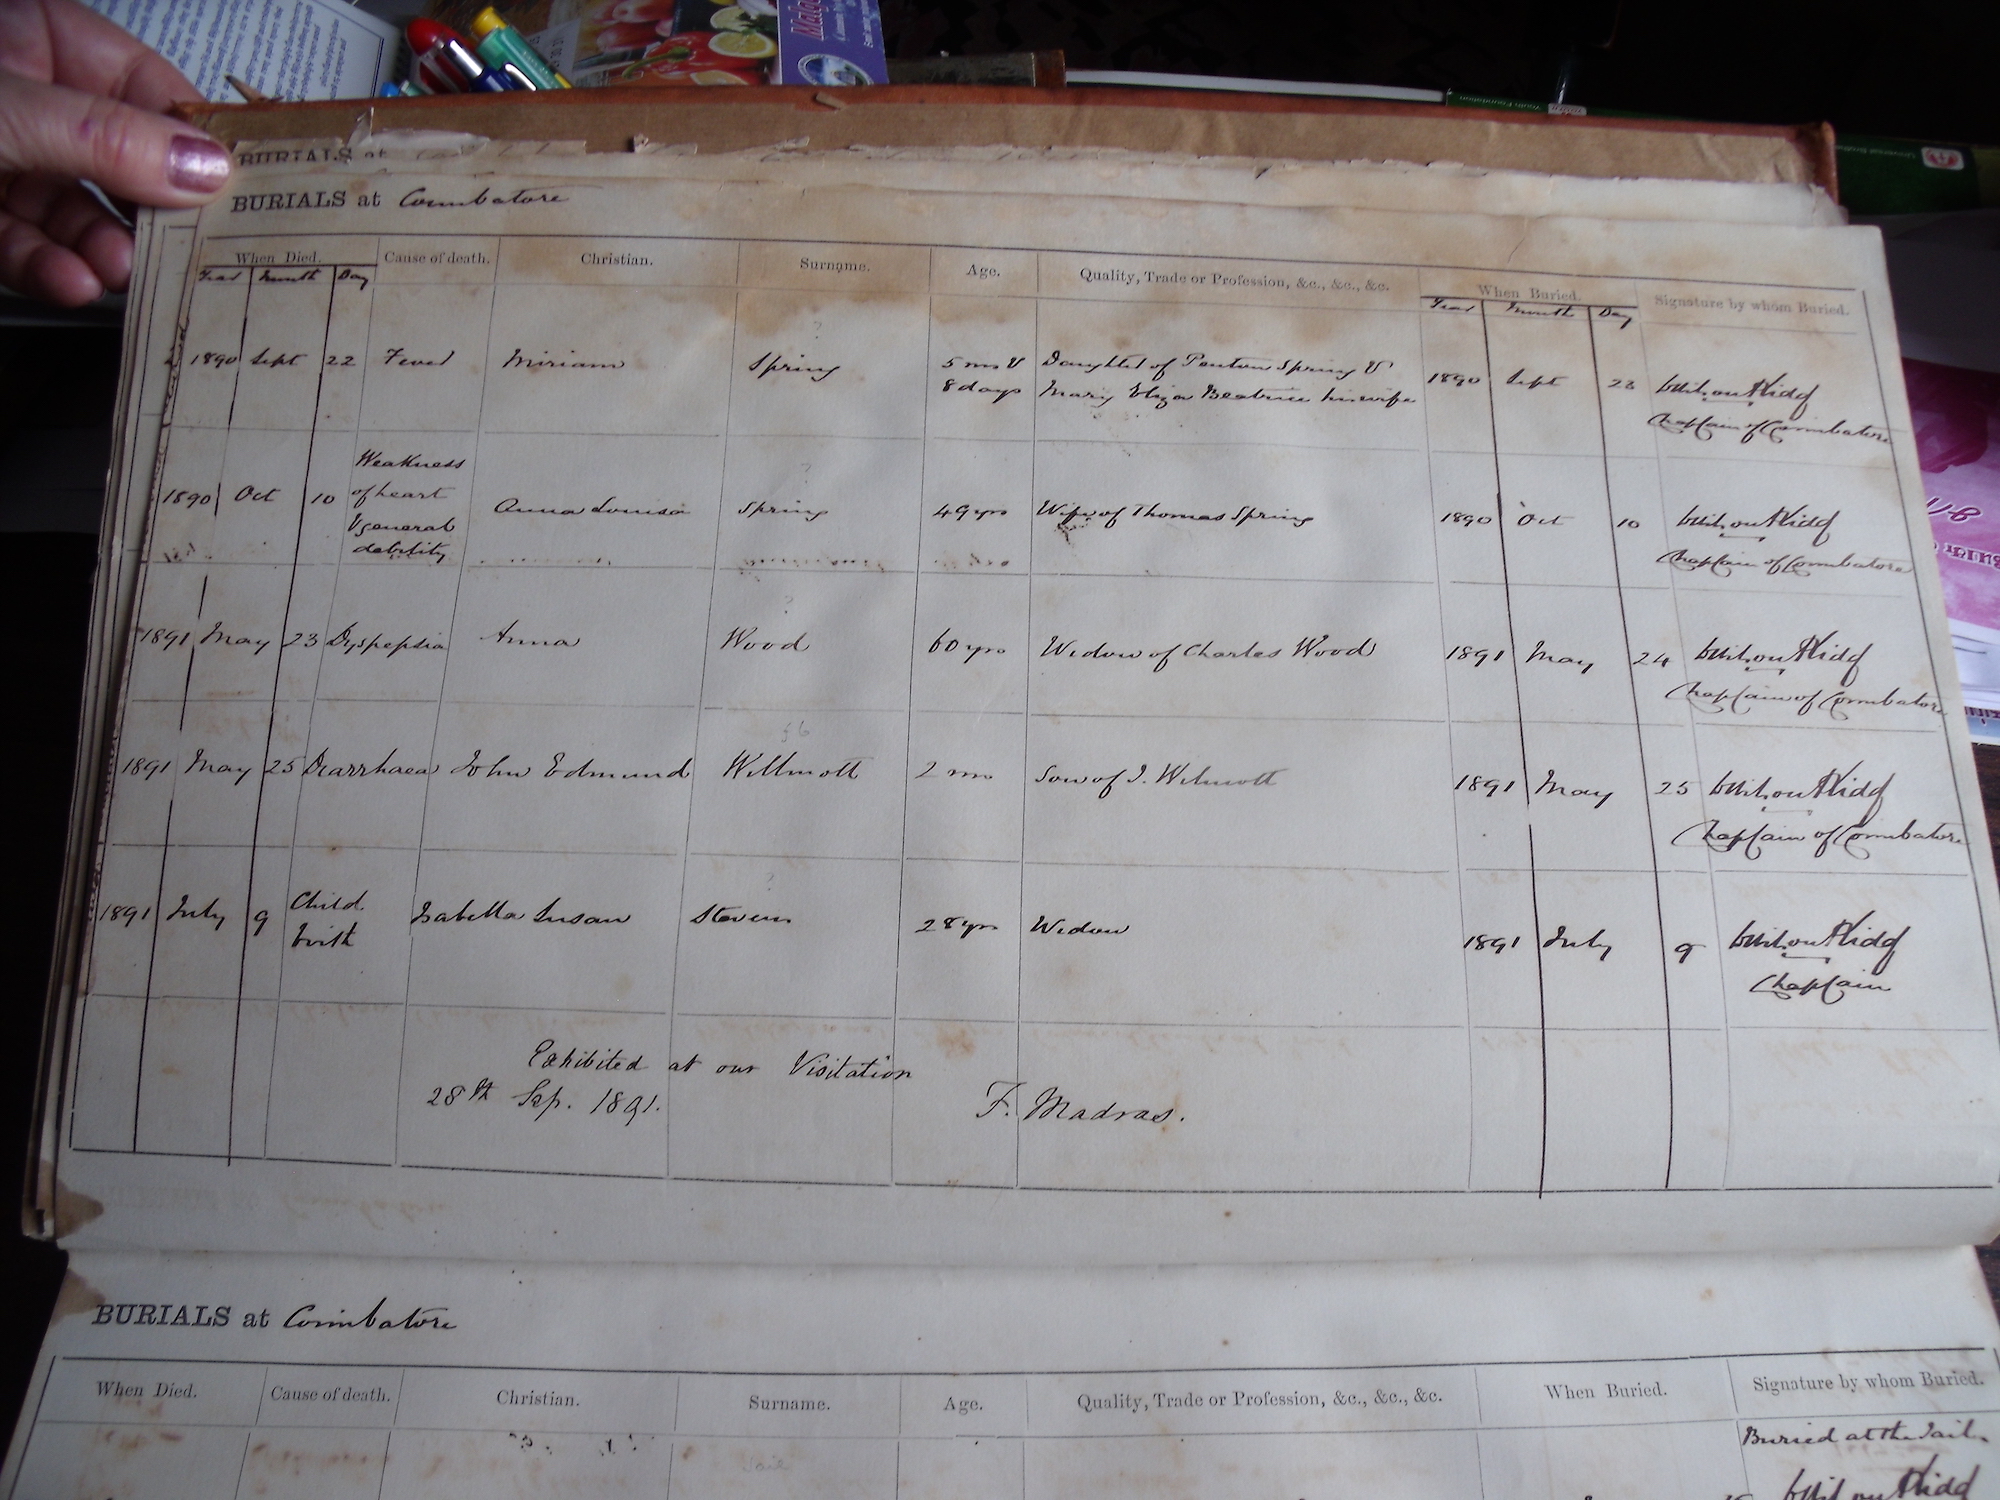 BURIALS at
BURIALS at Coimbatore
When Died. Cause of death. Christian. Surname. Age. Quality, Trade or Profession, &c., &c., &c. When Buried. Signature by whom Buried.
Year Month Day Year Month Day
1890 Sept 22 Fever Miriam Spring 5 ms & Daughter of Penton Spring & 1890 Sept 23 Kidd
8 days Mary Eliza Beatrice his wife Chaplain of Coimbatore
Weakness
1890 Oct 10 of heart Anna Louisa Spring 49 yrs Wife of Thomas Spring 1890 Oct 10 Kidd
& general
debility Chaplain of Coimbatore
1891 May 23 Dyspepsia Anna Wood 60 yrs Widow of Charles Wood 1891 May 24 Kidd
Chaplain of Coimbatore
1891 May 25 Diarrhaea John Edmund Willmott 2 ms Son of J. Wilmott 1891 May 25 Kidd
Chaplain of Coimbatore
1891 July 9 Child Isabella Susan Stevens 28 yrs Widow 1891 July 9 Kidd
birth Chaplain
Exhibited at our Visitation
28th Sep. 1891. F. Madras.
BURIALS at Coimbatore
When Died. Cause of death. Christian. Surname. Age. Quality, Trade or Profession, &c., &c., &c. When Buried. Signature by whom Buried.
Buried at the Jail.
Kidd